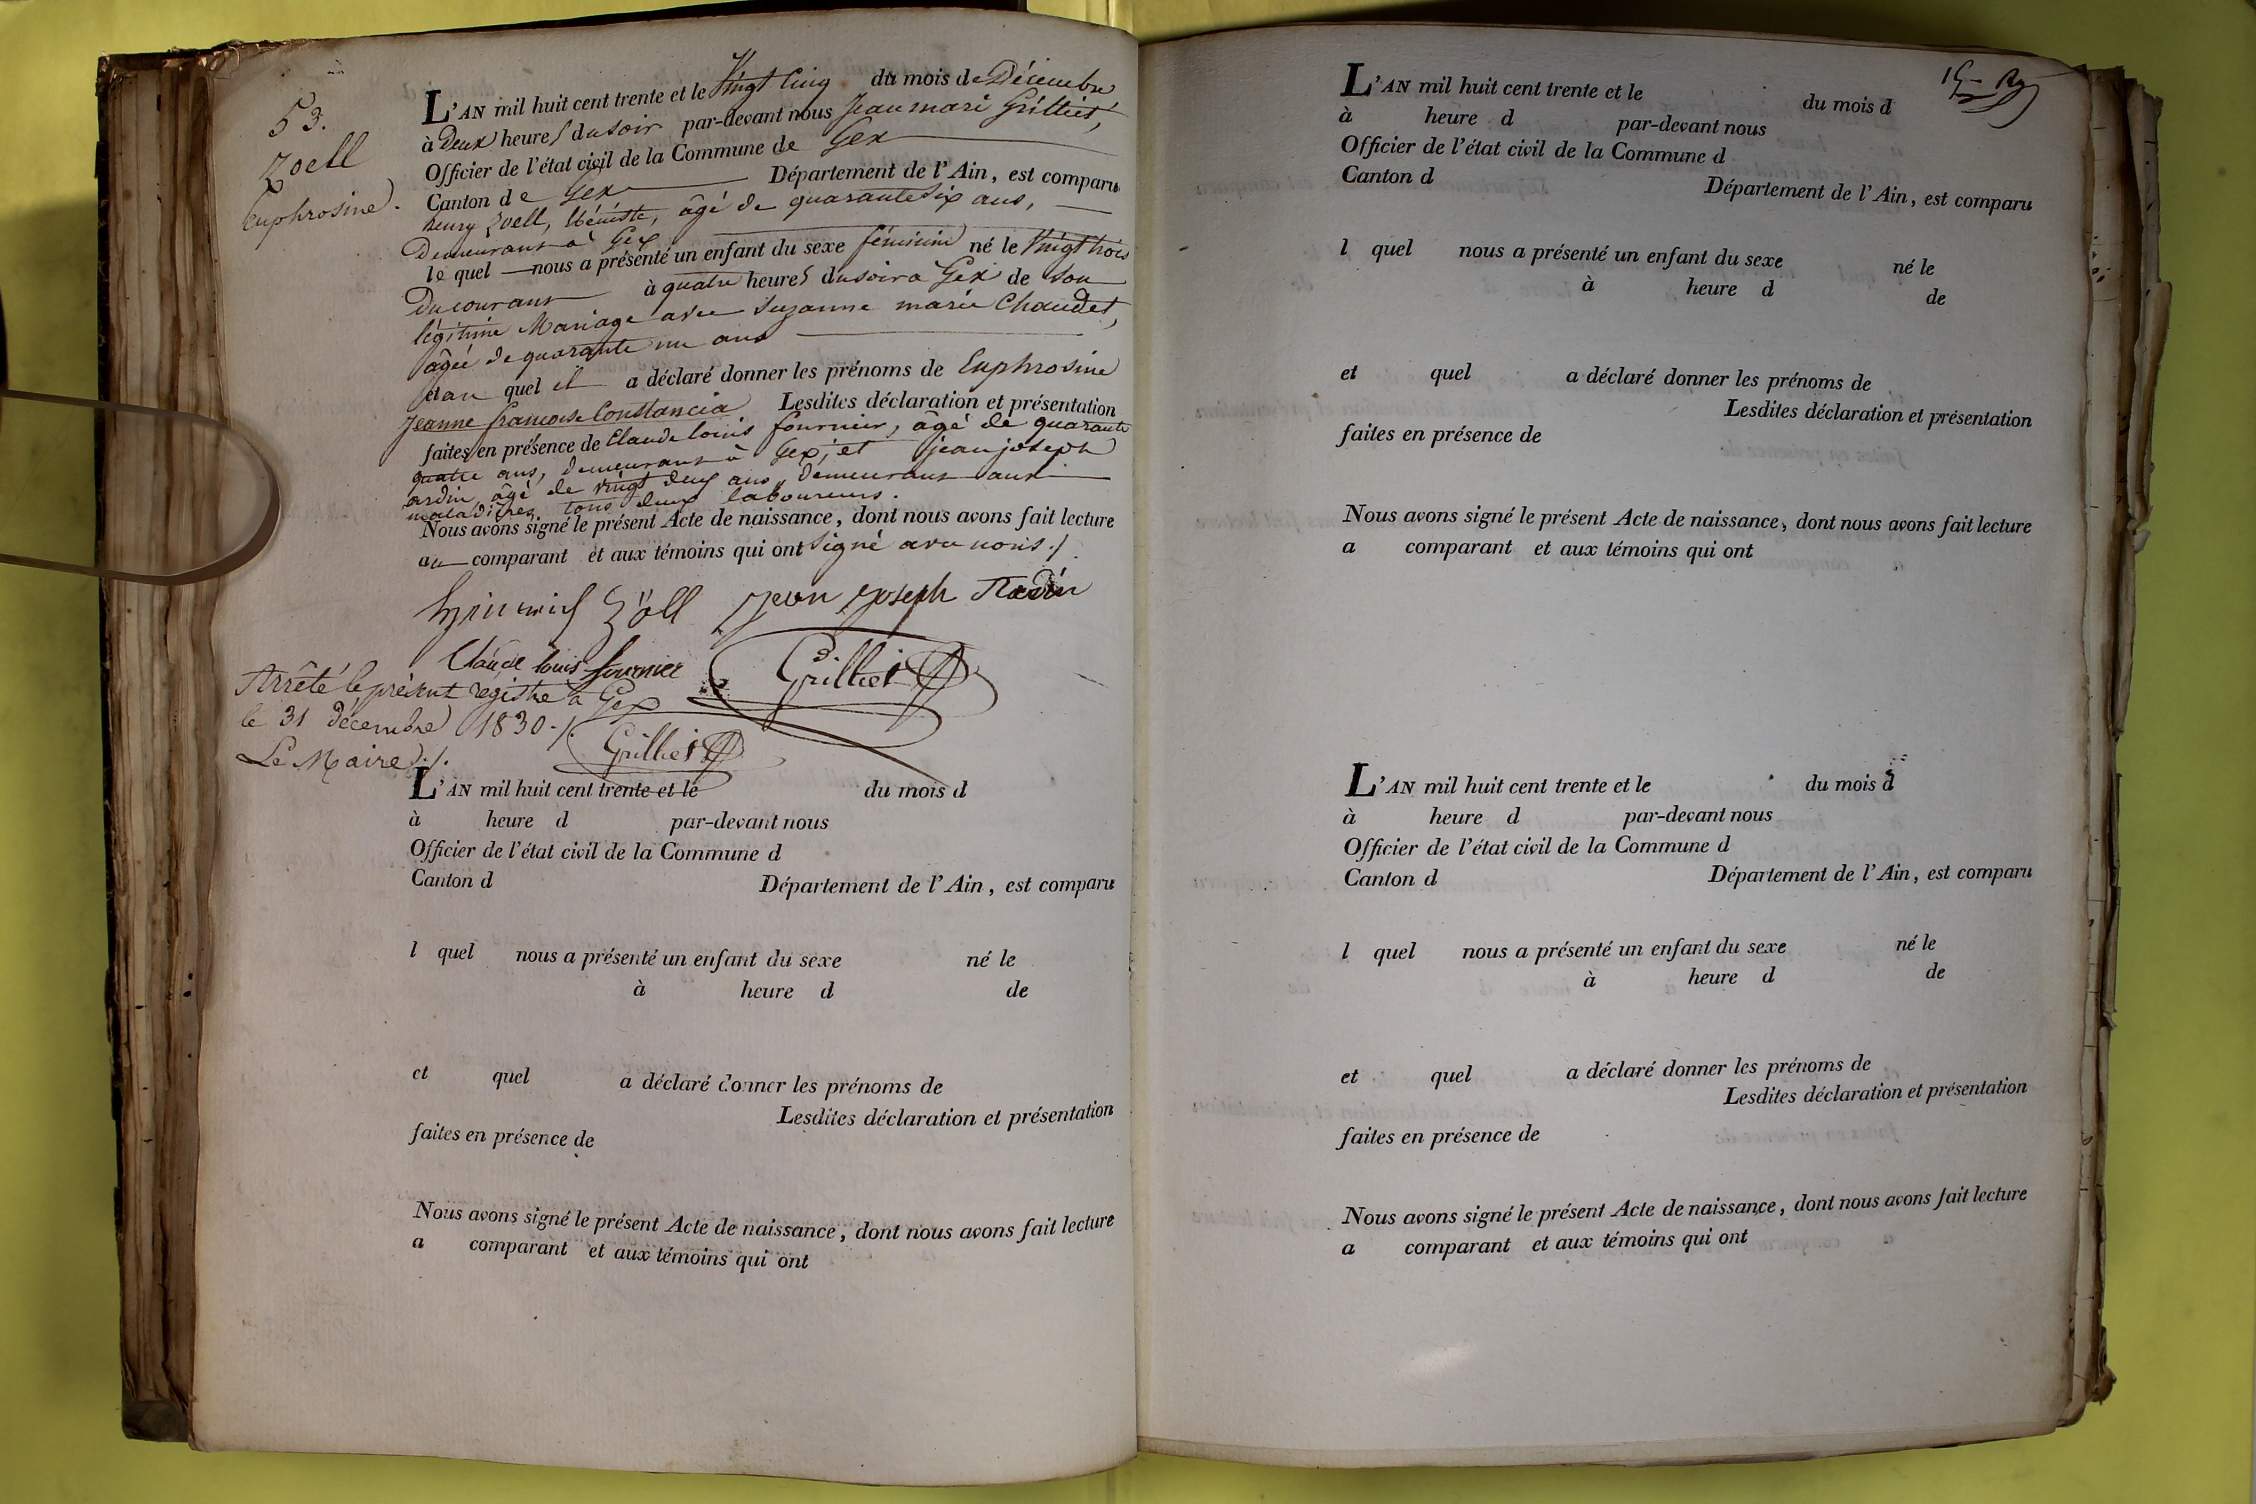 53.
Zoell
Euphrosine.
L'AN mil huit cent trente et le Vingt Cinq du mois de Décembre
à Deux heures du soir par-devant nous Jean marie Grilliet,
Officier de l'état civil de la Commune de Gex
Canton de Gex Département de l'Ain, est comparu
henry Zoell, Ebéniste, âgé de quarante Six ans,
Demeurant à Gex
le quel nous a présenté un enfant du sexe féminin né le Vingt trois
Du courant à quatre heures du soir à Gex de Son
légitime Mariage avec Suzanne marie Chaudet,
âgée de quarante un ans
et au quel il a déclaré donner les prénoms de Euphrosine
Jeanne francoise Constancia Lesdites déclaration et présentation
faites en présence de Claude louis fournier, âgé de quarante
quatre ans, demeurant à Gex, et jean joseph
ardin, âgé de vingt deux ans, demeurant aux
maladières, tous deux laboureurs.
Nous avons signé le présent Acte de naissance, dont nous avons fait lecture
au comparant et aux témoins qui ont Signé avec nous ./.
Heinrich Zöll Jean Joseph
Claude louis fournier Grilliet
Arrêté le présent registre à Gex
le 31 décembre 1830 ./.
Le Maire ./. Grilliet
L'AN mil huit cent trente et le du mois d
à heure d par-devant nous
Officier de l'état civil de la Commune d
Canton d Département de l'Ain, est comparu
l quel nous a présenté un enfant du sexe né le
à heure d de
et quel a déclaré donner les prénoms de
Lesdites déclaration et présentation
faites en présence de
Nous avons signé le présent Acte de naissance, dont nous avons fait lecture
a comparant et aux témoins qui ont
L'AN mil huit cent trente et le du mois d
à heure d par-devant nous
Officier de l'état civil de la Commune d
Canton d Département de l'Ain, est comparu
l quel nous a présenté un enfant du sexe né le
à heure d de
et quel a déclaré donner les prénoms de
Lesdites déclaration et présentation
faites en présence de
Nous avons signé le présent Acte de naissance, dont nous avons fait lecture
a comparant et aux témoins qui ont
L'AN mil huit cent trente et le du mois d
à heure d par-devant nous
Officier de l'état civil de la Commune d
Canton d Département de l'Ain, est comparu
l quel nous a présenté un enfant du sexe né le
à heure d de
et quel a déclaré donner les prénoms de
Lesdites déclaration et présentation
faites en présence de
Nous avons signé le présent Acte de naissance, dont nous avons fait lecture
a comparant et aux témoins qui ont